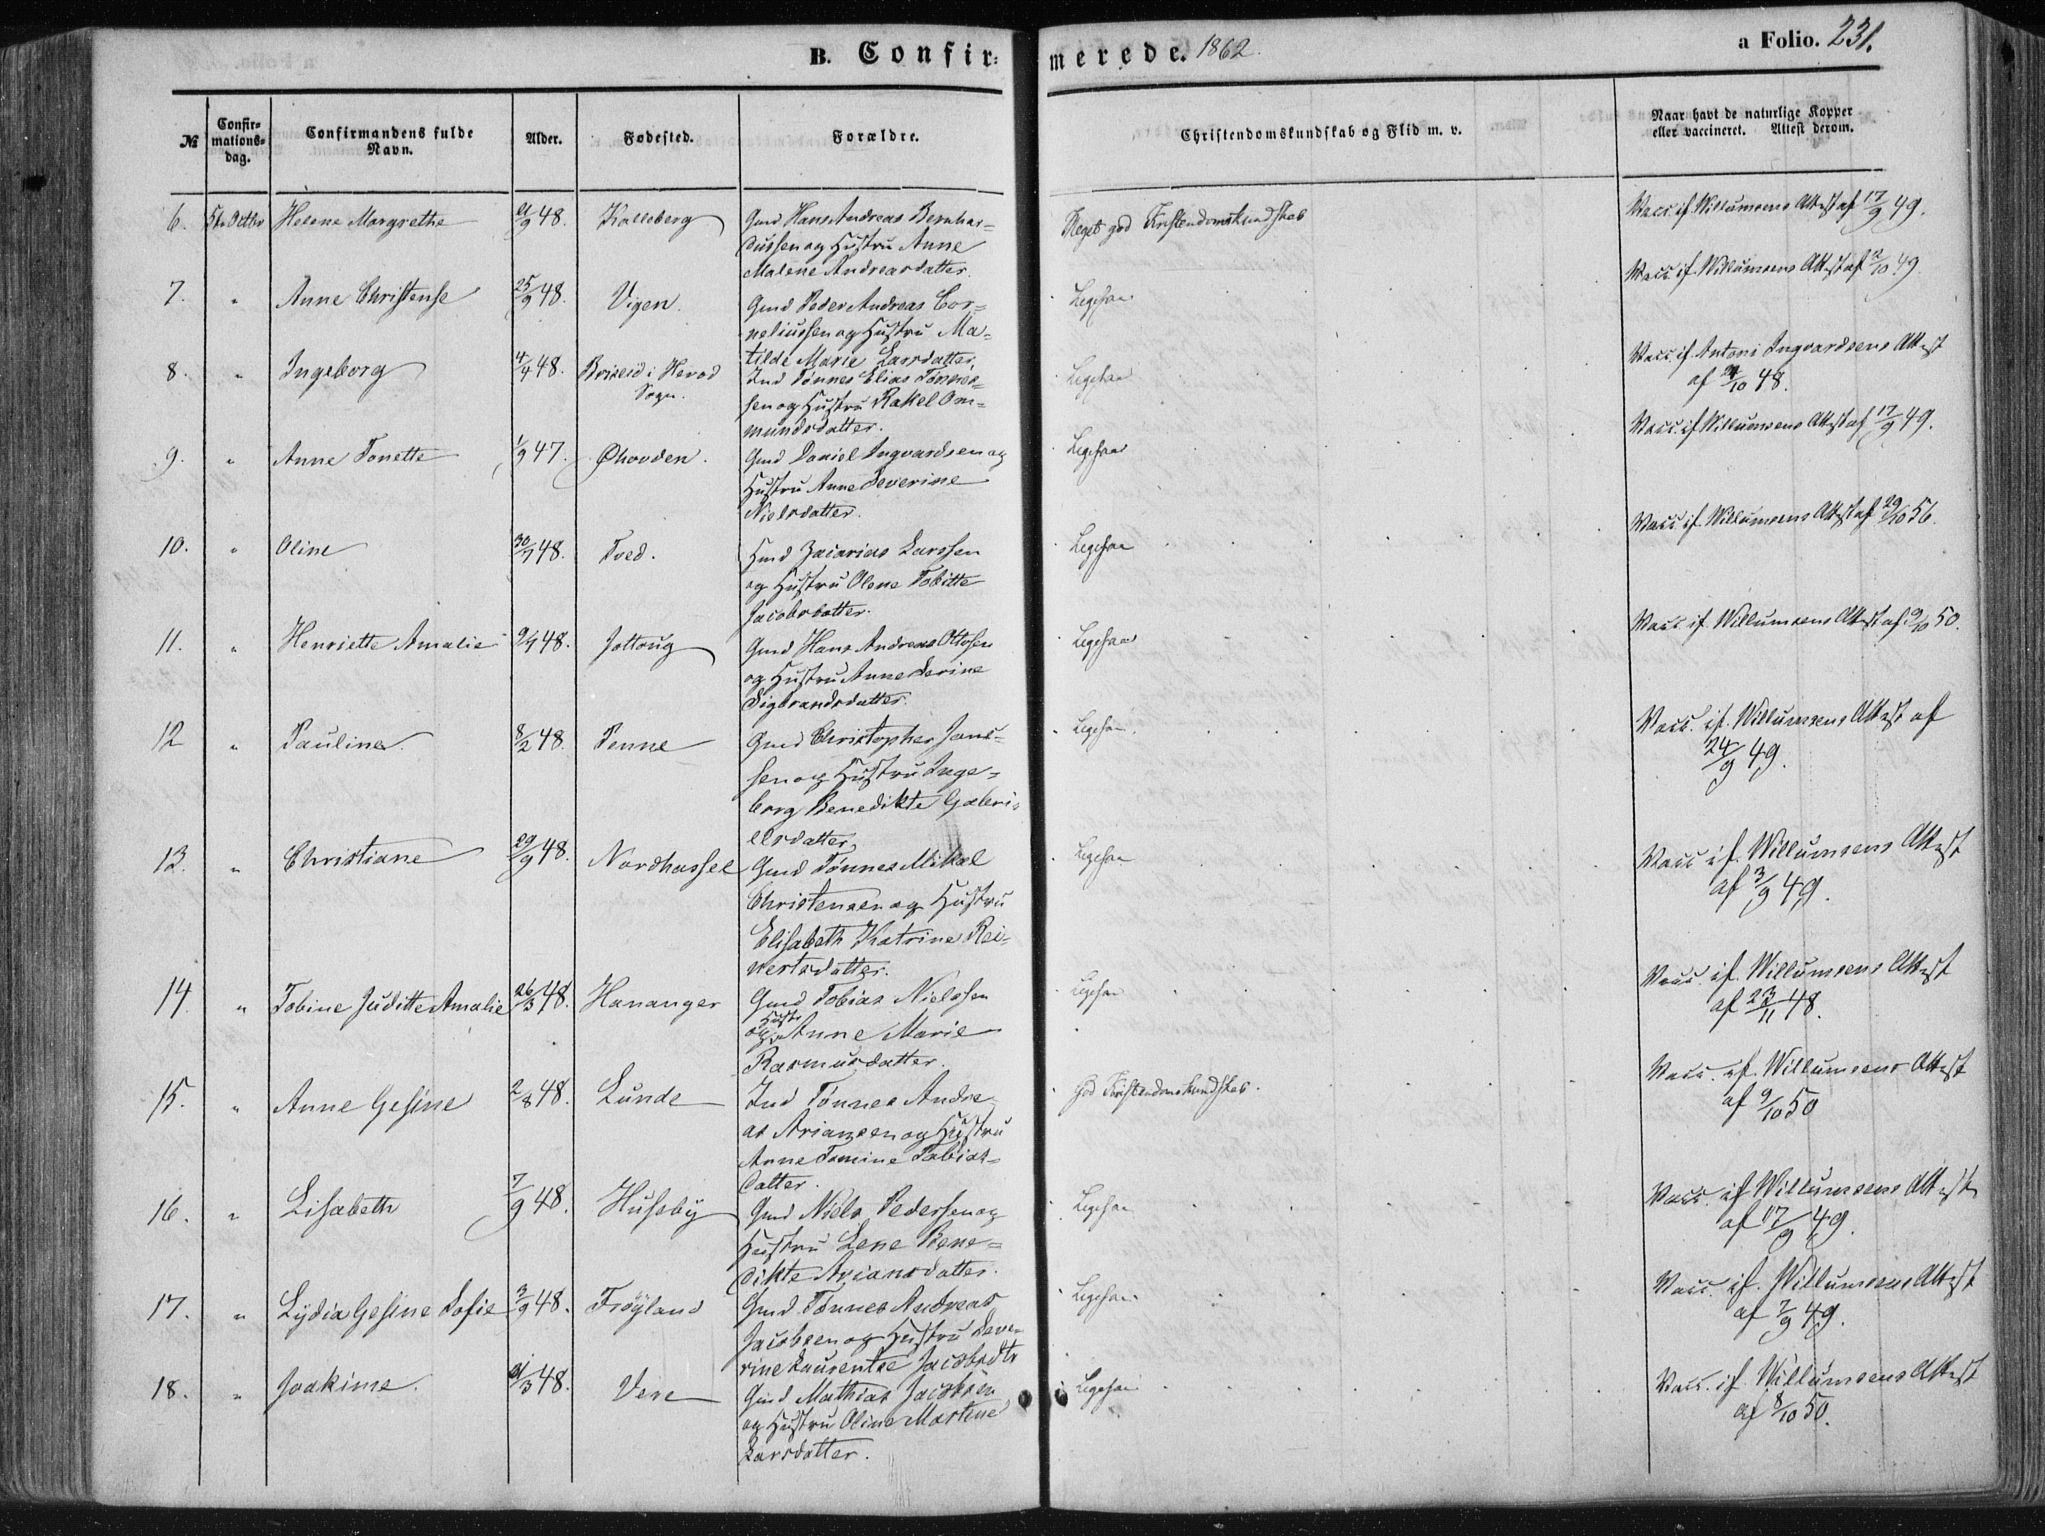 B. Confir=
merede. 1862.
a Folio. 231.
№
Confir-
mations-
dag.
Confirmandens fulde
Navn.
Alder.
Fødested.
Forældre.
Christendomskundskab og Flid m. v.
Naar havt de naturlige Kopper
eller vaccineret. Attest derom.
6. 5te Octbr Helene Margrethe 48. Kalleberg Gmd Hans Andreas Bernhar=
dussen og Hustru Anne
Malene Andreasdatter.
Meget god Kristendomskundskab
Vacc. if. Willumsens Attest af 17/9 49.
7. " Anne Christense 25/9 48. Vigen. Gmd Peder Andreas Cor=
neliussen og Hustru Ma=
tilde Marie Larsdatter.
Ligesaa
Vacc. if. Willumsens Attest af 49.
8. " Ingeborg 4/4 48. Briseid i Herod
Sogn.
Ind Tønnes Elias Tønnes=
sen og Hustru Rakel Om=
mundsdatter.
Ligesaa
Vacc. if. Antoni Ingvardsens Attest
af 48.
9. " Anne Tonette 1/9 47. Øhovden. Gmd Daniel Ingvardsen og
Hustru Anne Severine
Nielsdatter.
Ligesaa
Vacc. if. Willumsens Attest af 17/9 49.
10. " Oline 30/7 48. Tved. Hmd Zacarias Larssen
og Hustru Olene Tobitte
Jacobsdatter.
Ligesaa
Vacc. if. Willumsens Attest af 29/10 56.
11. " Henriette Amalie 48. Jølloug Gmd Hans Andreas Ottosen
og Hustru Anne Serine
Sigbrandsdatter.
Ligesaa
Vacc. if. Willumsens Attest af 9/10 50.
12 " Pauline. 8/2 48. Penne Gmd Christopher Jans=
sen og Hustru Inge=
borg Benedikte Gabri=
elsdatter.
Ligesaa.
Vacc. if. Willumsens Attest af
24/9 49.
13. " Christiane 29/9 48. Nordhassel Gmd Tønnes Mikal
Christensen og Hustru
Elisabeth Katrine Rei=
nertsdatter.
Ligesaa
Vacc. if. Willumsens Attest
af 3/9 49.
14. " Tobine Juditte Amalie 26/3 48. Hananger Gmd Tobias Nielssen
og Hustr Anne Marie
Rasmusdatter.
Ligesaa
Vacc. if. Willumsens Attest
af 23/11 48.
15. " Anne Gesine 2/8 48. Lunde Ind Tønnes Andre
as Ariansen og Hustru
Anne Tomine Tobias=
datter.
God Kristendomskundskab.
Vacc. if. Willumsens Attest
af 9/10 50
16. " Lisabeth 7/9 48. Huseby Gmd Niels Pedersen og
Hustru Lene Bene=
dikte Ariansdatter.
Ligesaa
Vacc. if. Willumsens Attest
af 17/9 49.
17. " Lydia Gesine Sofie 3/9 48. Frøyland Gmd Tønnes Andreas
Jacobsen og Hustru Seve=
rine Laurentse Jacobsdtr
Ligesaa
Vacc. if. Willumsens Attest
af 7/9 49.
18. " Joakime. 48. Vere Gmd Mathias Jacobsen
og Hustru Oline Martine
Larsdatter.
Ligesaa
Vacc. if. Willumsens Attest
af 8/10 50.